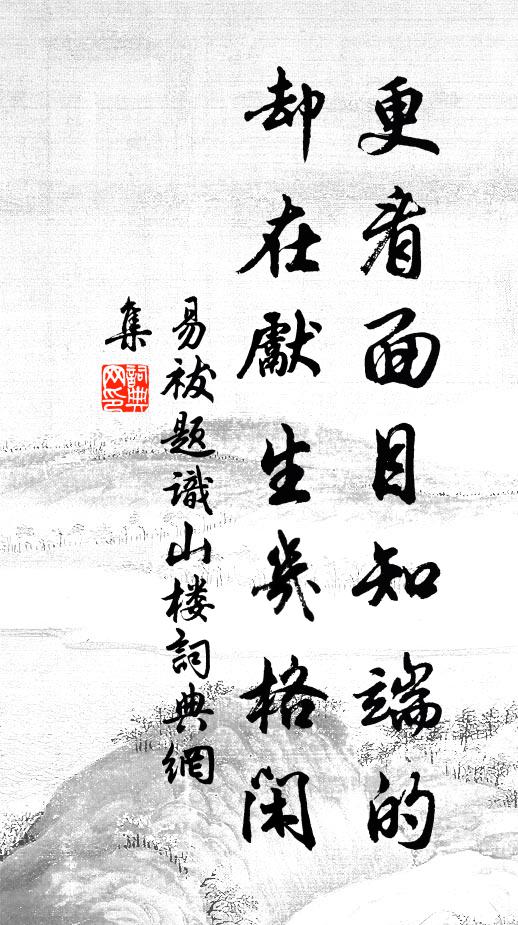 更看面目知端的
却在献生几格闲
易祓题識山楼詞典網
集
詞典網